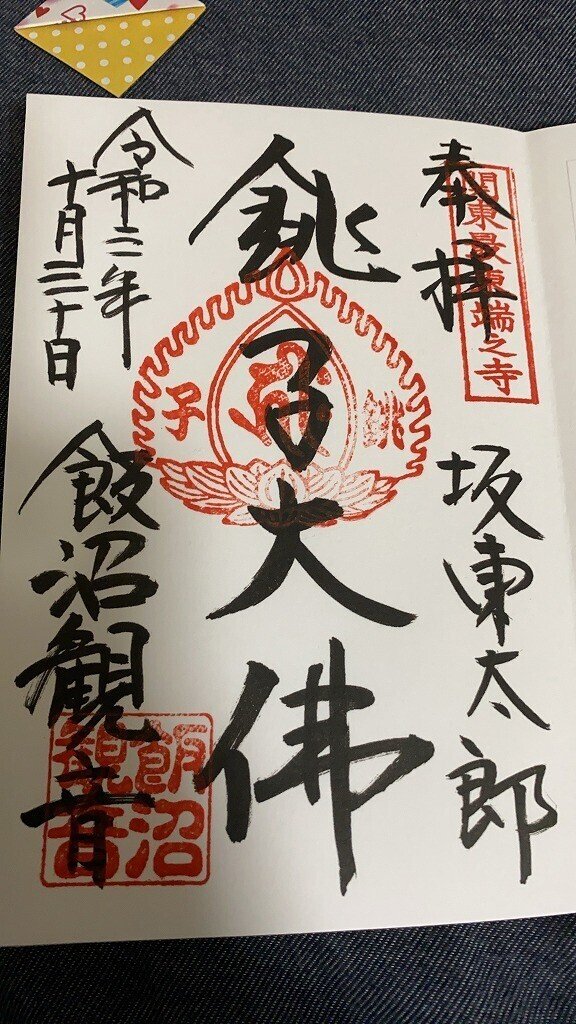 奉拝
坂東太郎
関東最東端之寺
銚子大佛
銚子
令和二年
十月三十日
飯沼観音
飯沼観音